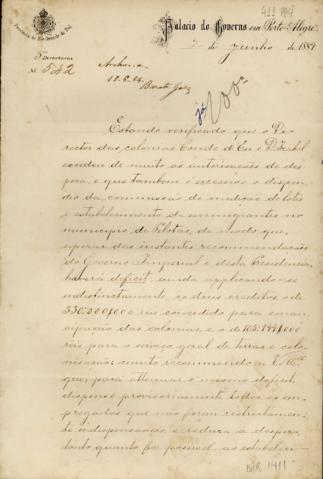 411 884
Palacio do Governo em Porto Alegre
Provincia do Rio Grande do Sul
2 de Junho de 1884
Nº 542
Archive-se
18.6.84
Barreto
já
Estando verificado que o Di-
rector das colonias Conde d'Eu e D. Isabel
excedeu de muito as autorisações de des-
peza, e que tambem é excessivo o dispen-
dio da commissão de medição de lotes
e estabelecimento de immigrantes no
municipio de Pelotas, de modo que,
apezar das instantes recommendações
do Governo Imperial e desta Presidencia,
haverá deficit, ainda applicando-se
indistinctamente os dous creditos o de
330:000$000 réis concedido para eman-
cipação das colonias, e o de
réis para o serviço geral de terras e colo-
nisação; muito recommendo a V. Mcê
que, para attenuar o mesmo deficit,
dispense provisoriamente todos os em-
pregados que não forem restrictamen-
te indispensaveis, e reduza a despeza,
tanto quanto for possivel, ao estabeleci-